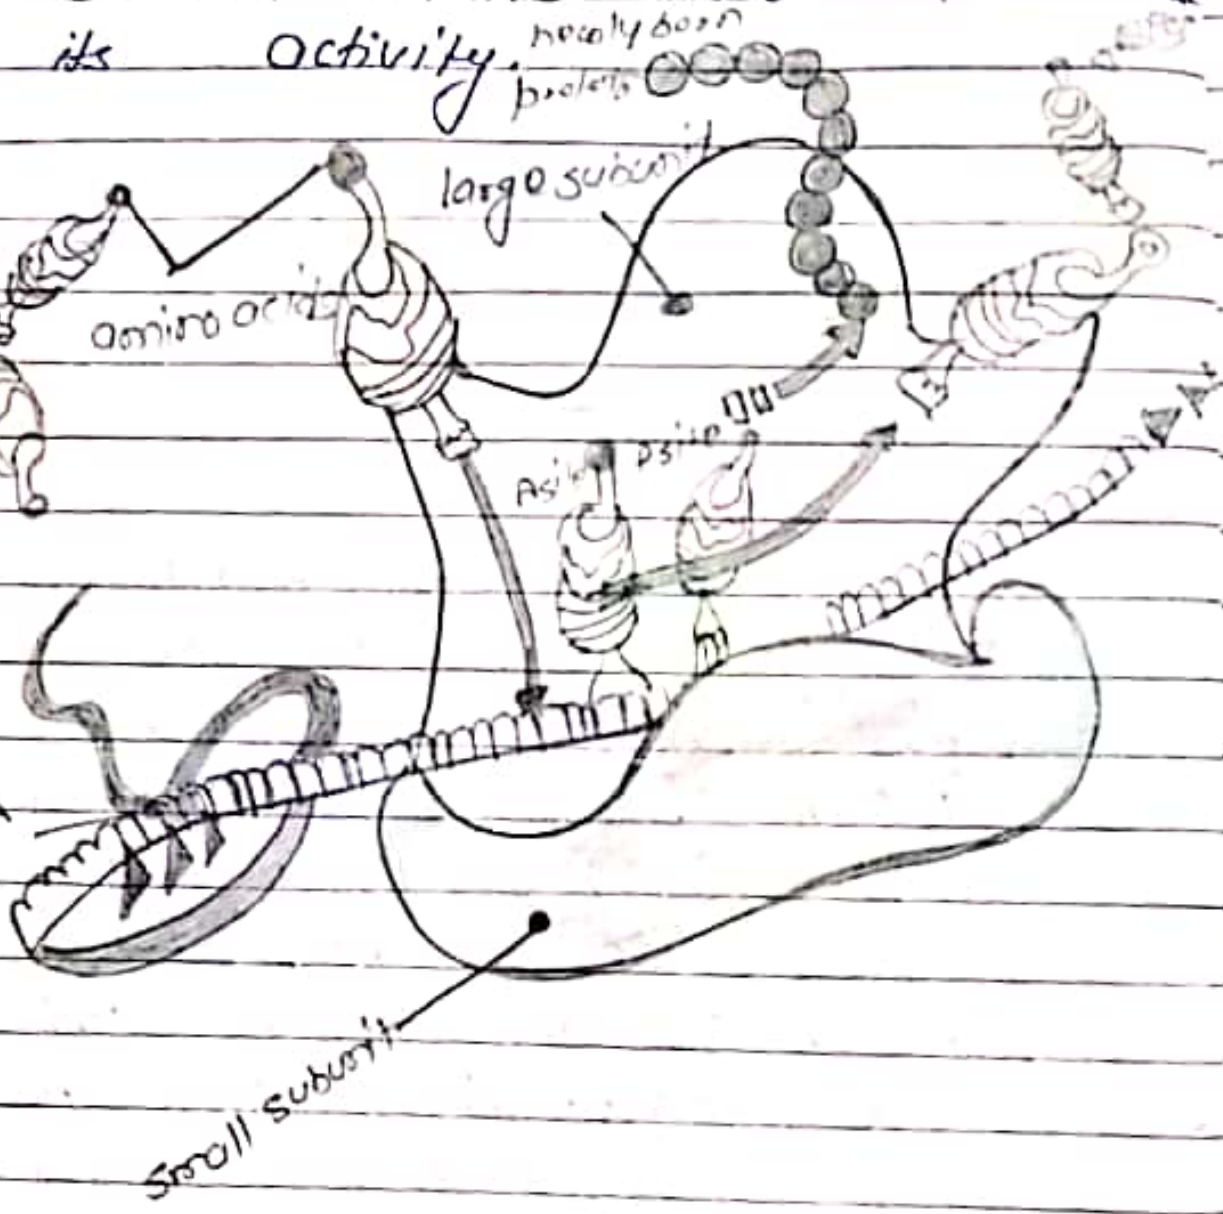 its activity.
newly born
protein
large subunit
amino acids
Asite
Psite
small subunit